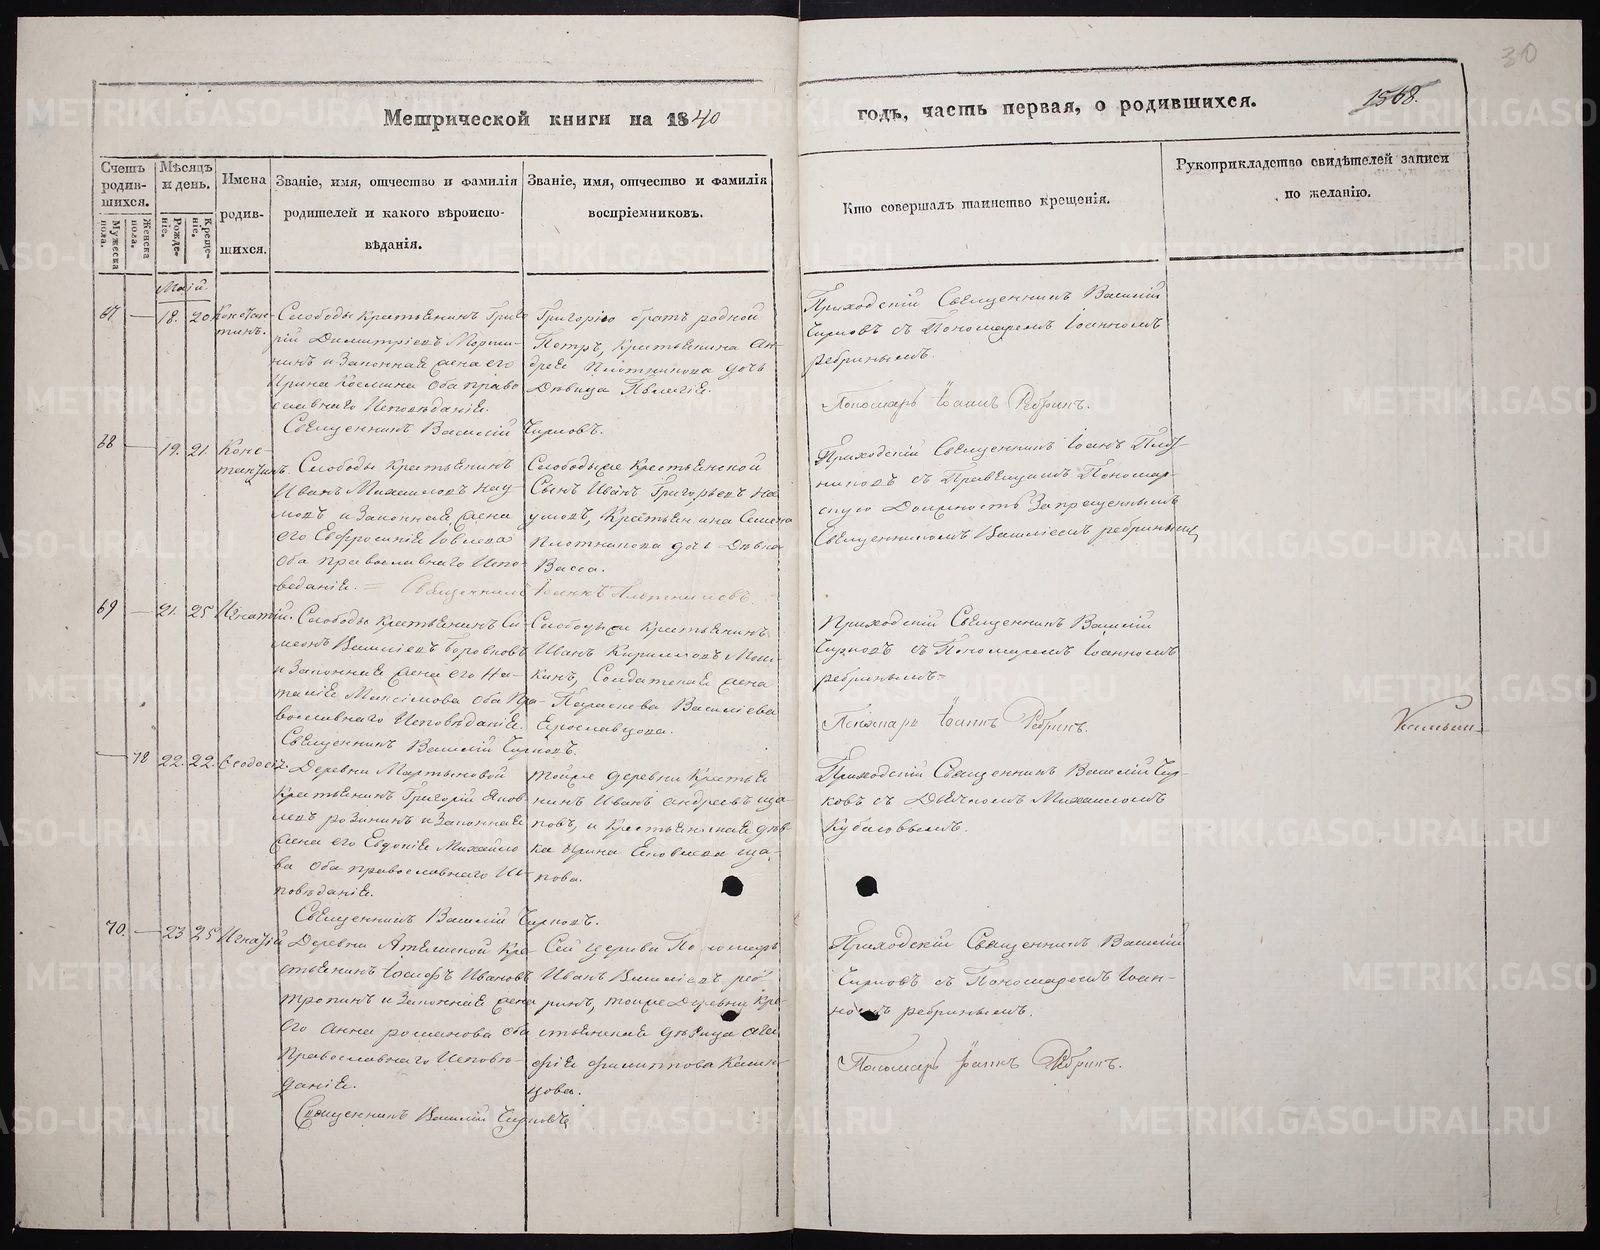 30
1568.
Метрической книги на 1840
годъ, часть первая, о родившихся.
Счетъ родив-шихся.
Мужеска пола.
Женска пола.
Мѣсяцъ и день.
Рожде-нiе.
Креще-нiе.
Имена родив-шихся.
Званiе, имя, отчество и фамилiя
родителей и какого вѣроиспо-
вѣданiя.
Званiе, имя, отчество и фамилiя
воспрiемниковъ.
Кто совершалъ таинство крещенiя.
Рукоприкладство свидѣтелей записи
по желанiю.
Маiй
67 18. 20 Констан-
тинъ.
Слободы крестьянинъ Григо
рiй Димитрiевъ
и Законная жена его
Ирина Козмина оба право
славнаго Исповѣданiя.
Священникъ Василiй Чирковъ.
Григорiю братъ родной
Петръ, крестьянина Ан-
дрея Плотникова дочь
Дѣвица Пелагiя.
Приходскiй Священникъ Василiй
Чирковъ съ Пономаремъ Iоанномъ
ребринымъ.
Пономарь Iоаннъ Ребринъ.
68 19. 21. Конс-
тантинъ.
Слободы крестьянинъ
Иванъ Михаиловъ Нау
мовъ и Законная жена
его Евфросинiя Iовлева
оба православнаго Испо-
веданiя. Священникъ Iоаннъ Плотниковъ.
Слободы же крестьянской
Сынъ Иванъ Григорьевъ На
умовъ, крестьянина Семена
Плотникова дочь Дѣвка
Васса.
Приходскiй Священникъ Iоаннъ Плот
никовъ съ Правящимъ Пономар-
скую Должность Запрещеннымъ
Священникомъ Василiемъ ребринымъ
69 21. 25 Игнатiй.
Слободы крестьянинъ Си-
меонъ Василiевъ Боровковъ
и Законная жена его На-
талiя Максимова оба Пра-
вославнаго Исповѣданiя.
Священникъ Василiй Чирковъ.
Слободы же крестьянинъ
Иванъ Кирилловъ
Солдатская жена
Параскева Василiева
Ярославцова.
Приходскiй Священникъ Василiй
Чирковъ съ Пономаремъ Iоанномъ
ребринымъ
Пономарь Iоаннъ Ребринъ.
78 22. 22. Ѳеодосiя.
Деревни Мартыновой
крестьянинъ Григорiй Яков
левъ розининъ и Законная
жена его Евдокiя Михайло
ва оба православнаго Ис-
повѣданiя.
Священникъ Василiй Чирковъ.
тойже деревни крестья
нинъ Иванъ андреевъ ща
повъ, и крестьянская дѣв
ка Ирина Яковлева ща-
пова.
Приходскiй Священникъ Василiй Чир-
ковъ съ Дьячкомъ Михаиломъ
Кубасовымъ.
70. 23 25 Игнатiй
Деревни Ательской кре-
стьянинъ Iосифъ Ивановъ
и Законная жена
его Анна романова оба
Православнаго Исповѣ-
данiя.
Священникъ Василiй Чирковъ
Сей церкви Пономарь
Иванъ Василiевъ реб
ринъ, тойже Деревни кре-
стьянская дѣвица
филиппова
цова.
Приходскiй Священникъ Василiй
Чирковъ съ Пономаремъ Iоан-
номъ ребринымъ.
Пономарь Iоаннъ Ребринъ.